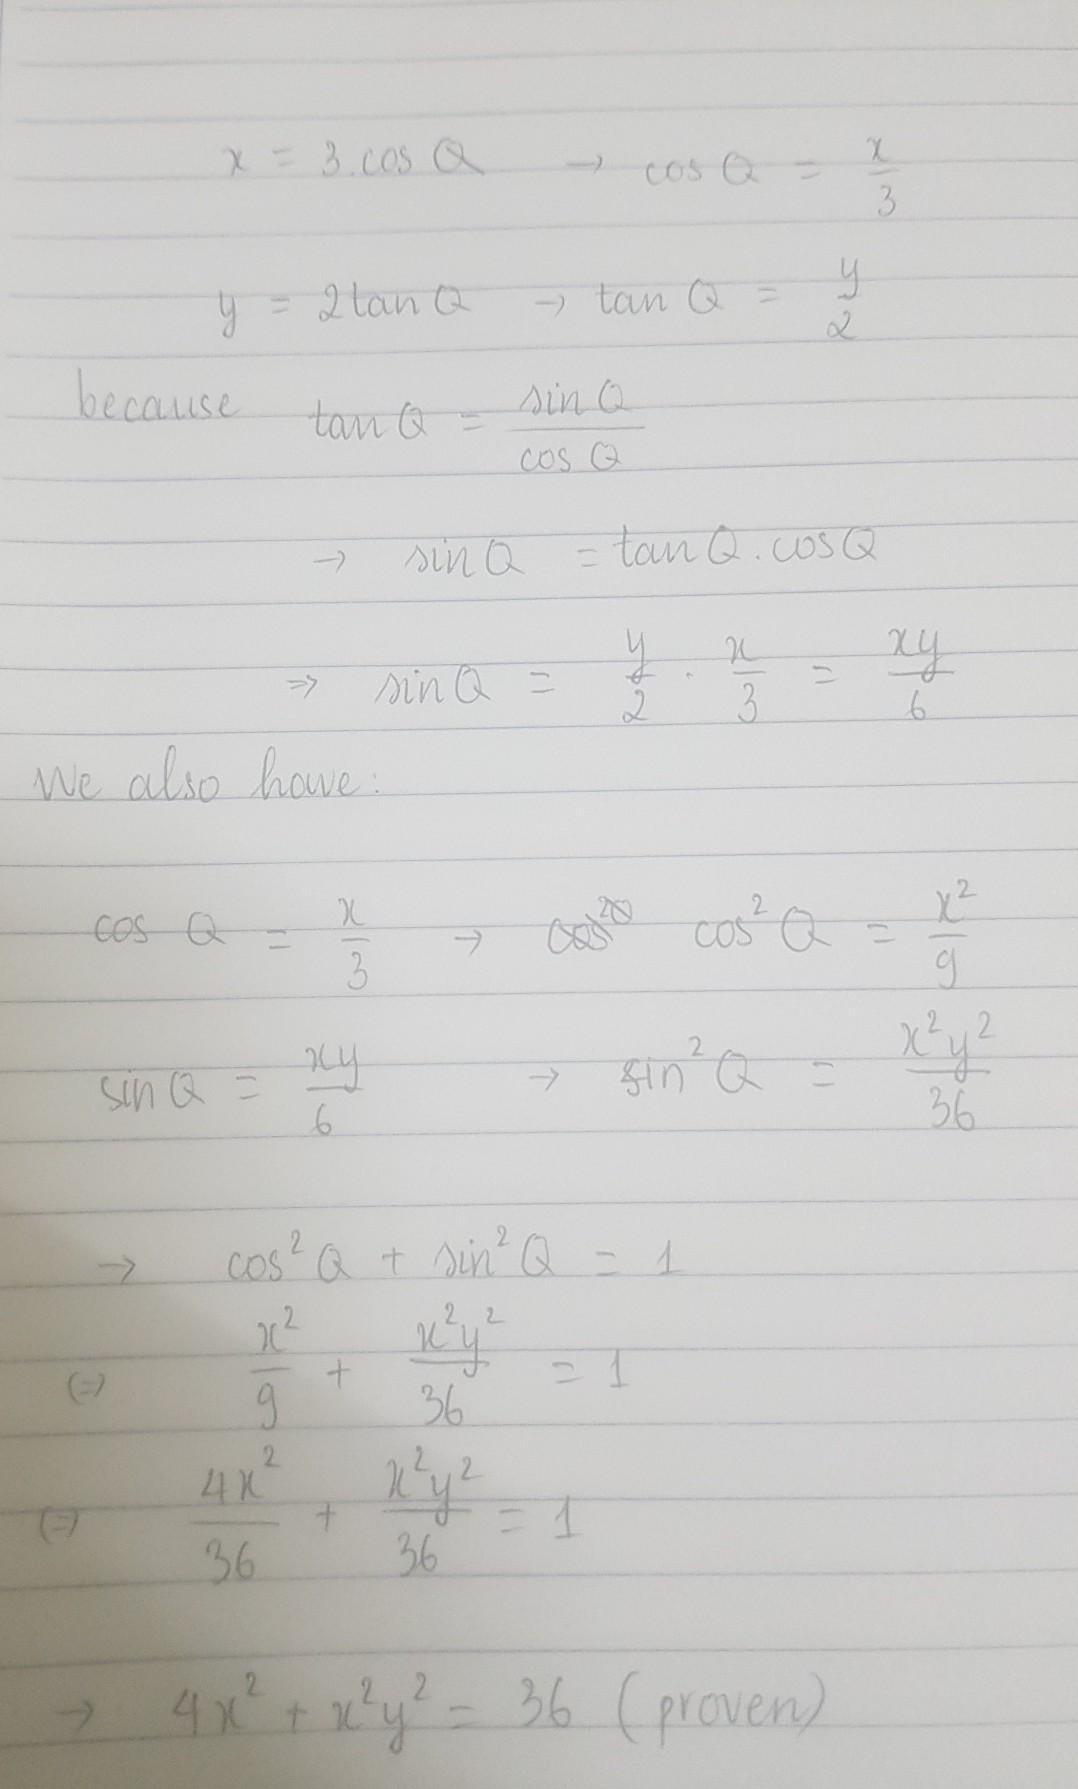 x = 3.cos Q → cos Q = x/3
y = 2tan Q → tan Q = y/2
because tan Q = sin Q/cos Q
→ sin Q = tan Q . cos Q
⇒ sin Q = y/2 . x/3 = xy/6
We also have:
cos Q = x/3 → cos² Q = x²/9
sin Q = xy/6 → sin² Q = x²y²/36
→ cos² Q + sin² Q = 1
(=) x²/9 + x²y²/36 = 1
(=) 4x²/36 + x²y²/36 = 1
→ 4x² + x²y² = 36 (proven)